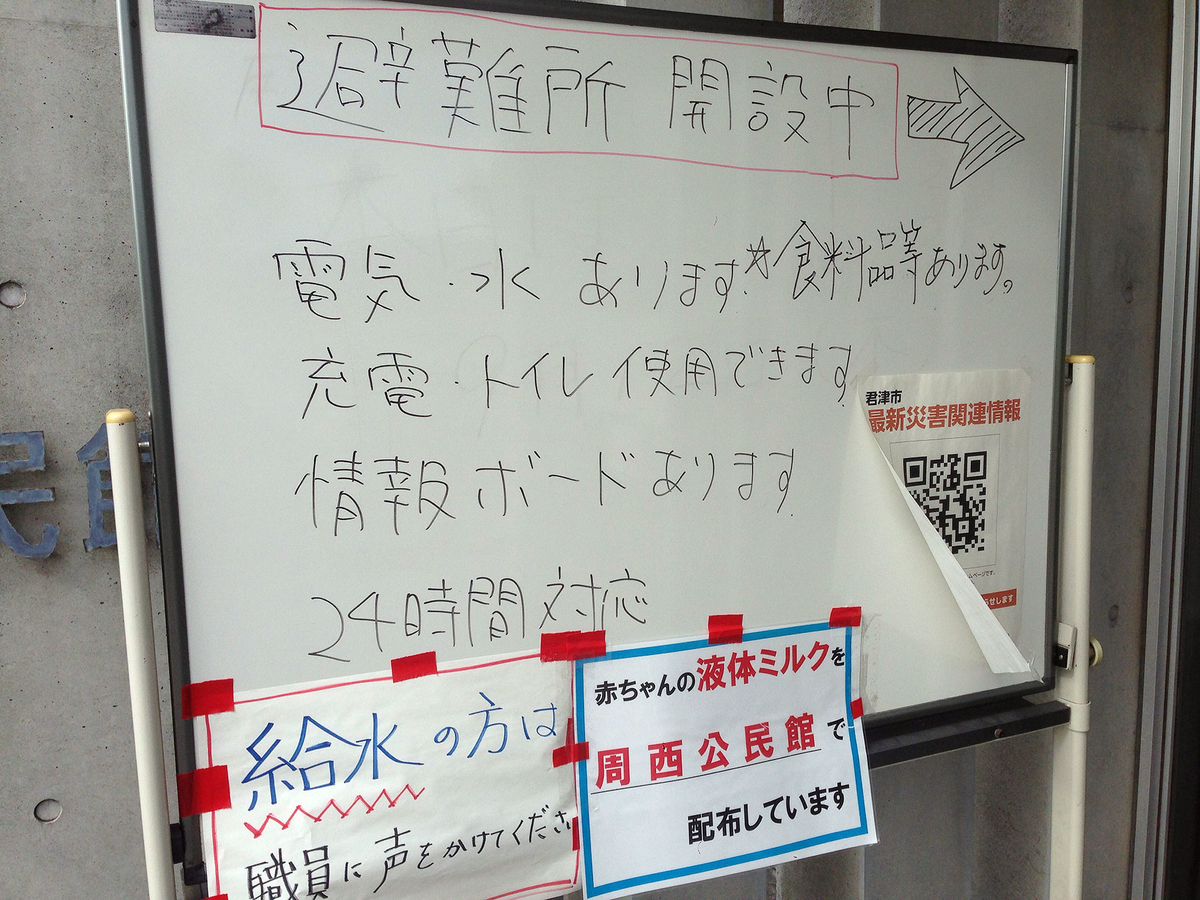 避難所 開設中
電気・水 あります。*食料品等あります。
充電・トイレ 使用できます
情報ボードあります
24時間対応
君津市
最新災害関連情報
ムページです。
らせします
給水の方は
職員に声をかけてくださ
赤ちゃんの液体ミルクを
周西公民館で
配布しています
民館